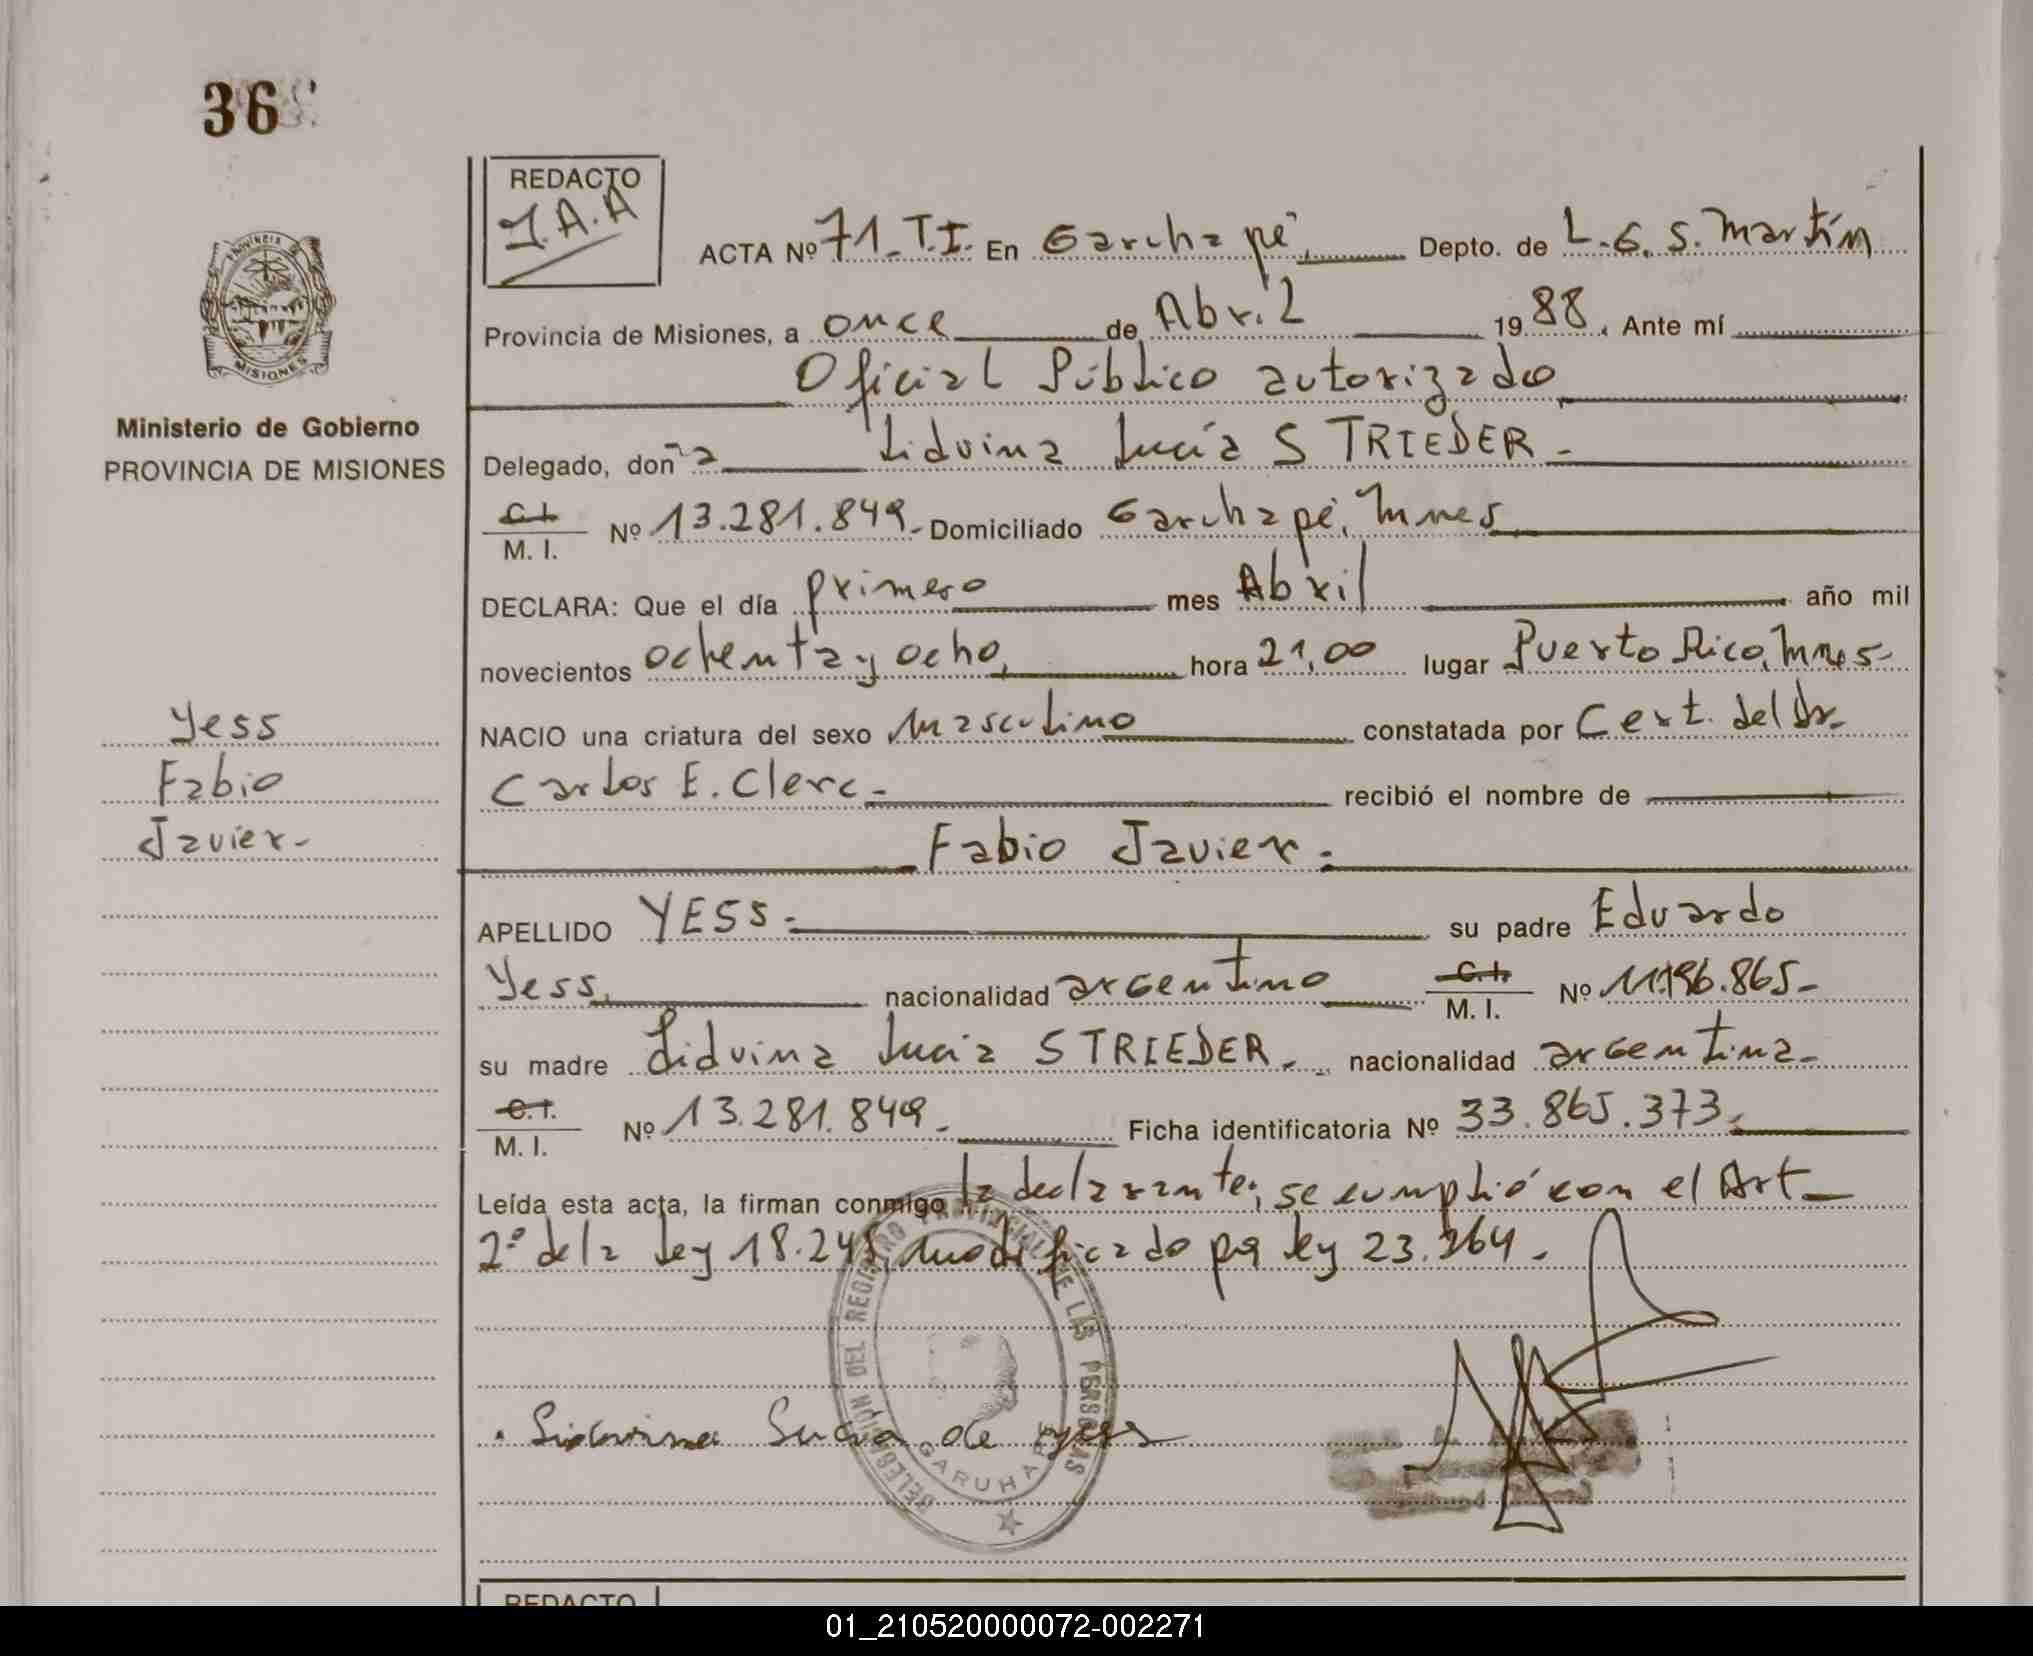 36
REDACTO
J.A.A
ACTA Nº 71_T.I. En Garuhapé, Depto. de L.G.S. Martín
Provincia de Misiones, a once de Abril 1988. Ante mí
Oficial Público autorizado
Ministerio de Gobierno
PROVINCIA DE MISIONES
Delegado, doña Lidvina Lucía STRIEDER.-
C.I. M. I. Nº 13.281.849.- Domiciliado Garuhapé, Mnes
DECLARA: Que el día primero mes Abril año mil
novecientos ochenta y ocho, hora 21,00 lugar Puerto Rico, Mnes-
NACIO una criatura del sexo masculino constatada por Cert. del Dr.
Carlos E. Clerc.- recibió el nombre de
Fabio Javier.-
Yess
Fabio
Javier-
APELLIDO YESS.- su padre Eduardo
Yess, nacionalidad argentino C.I. M. I. Nº 11.196.865-
su madre Lidvina Lucia STRIEDER.- nacionalidad argentina-
C.I. M. I. Nº 13.281.849.- Ficha identificatoria Nº 33.865.373.
Leída esta acta, la firman conmigo la declarante; se cumplió con el Art-
2º de la Ley 18.248, modificado por Ley 23.264.-
Lidvina Lucia de Yess
DELEGACION DEL REGISTRO PROVINCIAL DE LAS PERSONAS
GARUHAPE
REDACTO
01_210520000072-002271
PROVINCIA DE
MISIONES